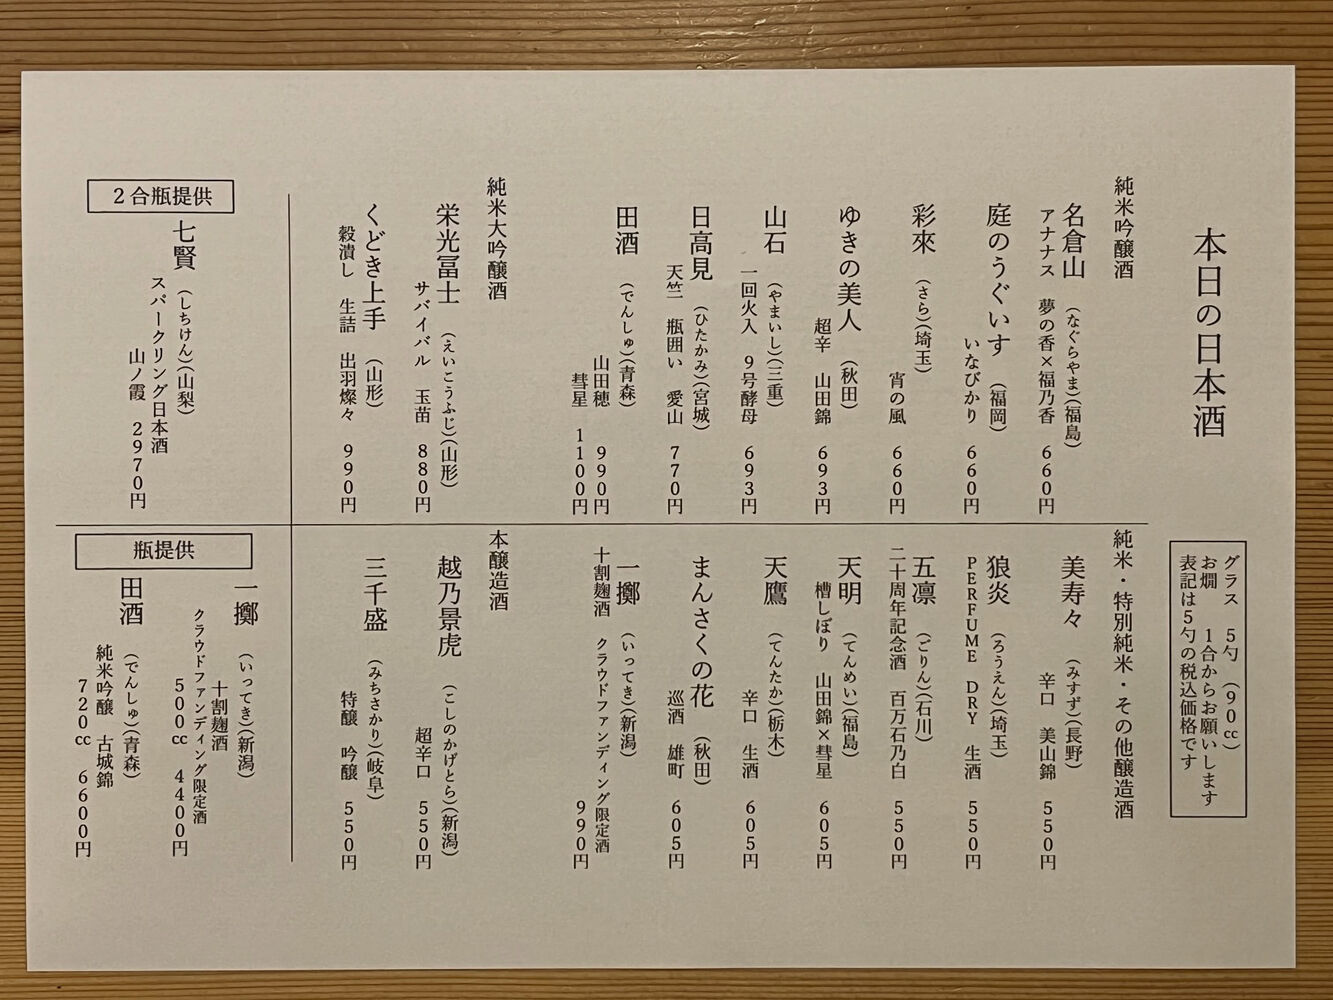 本日の日本酒
グラス　5勺　(90cc)
お燗　1合からお願いします
表記は5勺の税込価格です
純米吟醸酒
名倉山　(なぐらやま)(福島)
アナナス　夢の香×福乃香　660円
庭のうぐいす　(福岡)
いなびかり　660円
彩來　(さら)(埼玉)
宵の風　660円
ゆきの美人　(秋田)
超辛　山田錦　693円
山石　(やまいし)(三重)
一回火入　9号酵母　693円
日高見　(ひたかみ)(宮城)
天竺　瓶囲い　愛山　770円
田酒　(でんしゅ)(青森)
山田穂　990円
彗星　1100円
純米大吟醸酒
栄光冨士　(えいこうふじ)(山形)
サバイバル　玉苗　880円
くどき上手　(山形)
穀潰し　生詰　出羽燦々　990円
純米・特別純米・その他醸造酒
美寿々　(みすず)(長野)
辛口　美山錦　550円
狼炎　(ろうえん)(埼玉)
PERFUME DRY　生酒　550円
五凛　(ごりん)(石川)
二十周年記念酒　百万石乃白　550円
天明　(てんめい)(福島)
槽しぼり　山田錦×彗星　605円
天鷹　(てんたか)(栃木)
辛口　生酒　605円
まんさくの花　(秋田)
巡酒　雄町　605円
一擲　(いってき)(新潟)
十割麹酒　クラウドファンディング限定酒
990円
本醸造酒
越乃景虎　(こしのかげとら)(新潟)
超辛口　550円
三千盛　(みちさかり)(岐阜)
特醸　吟醸　550円
2合瓶提供
七賢　(しちけん)(山梨)
スパークリング日本酒
山ノ霞　2970円
瓶提供
一擲　(いってき)(新潟)
十割麹酒
クラウドファンディング限定酒
500cc　4400円
田酒　(でんしゅ)(青森)
純米吟醸　古城錦
720cc　6600円